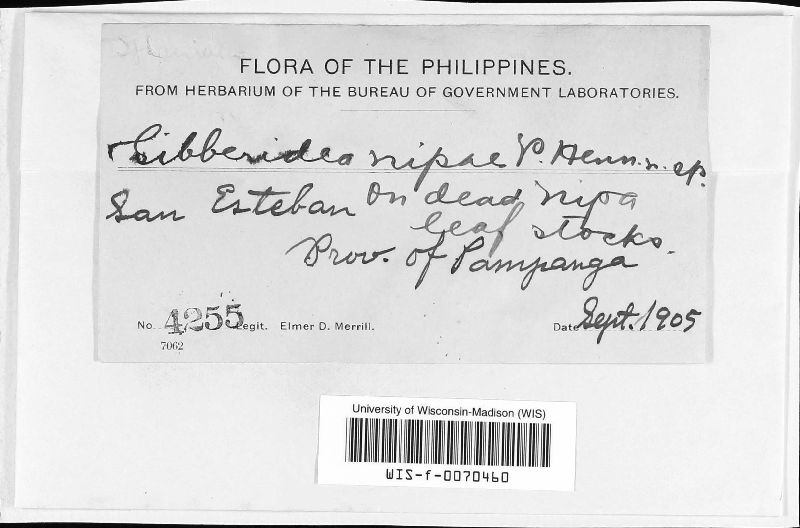 FLORA OF THE PHILIPPINES.
FROM HERBARIUM OF THE BUREAU OF GOVERNMENT LABORATORIES.
Gibberidea nipae P. Henn. n. sp.
San Esteban On dead nipa
leaf stocks.
Prov. of Pampanga
No. 4255 Legit. Elmer D. Merrill. Date Sept. 1905
7062
University of Wisconsin-Madison (WIS)
WIS-f-0070460